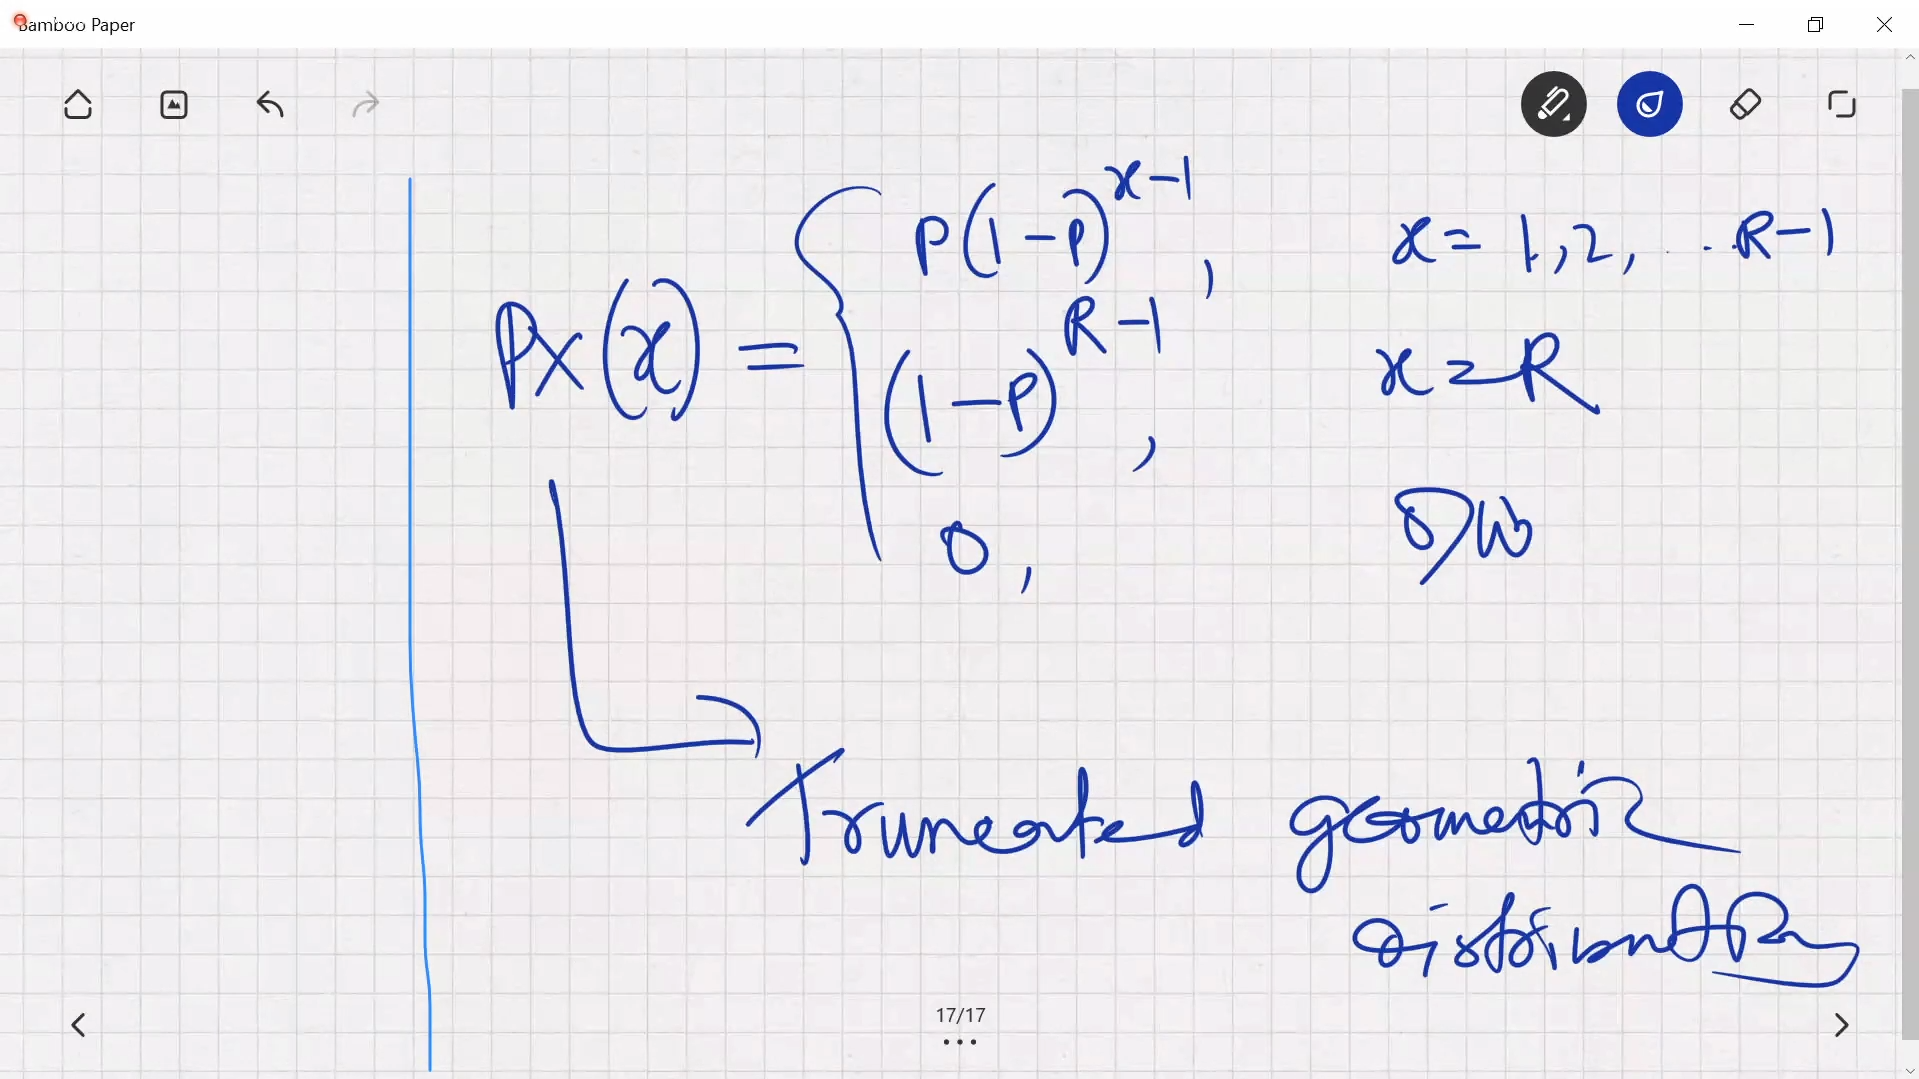 Bamboo Paper
PX(x) = { P(1-P)^{x-1}, x = 1, 2, ... R-1
(1-P)^{R-1}, x = R
0, O/W
Truncated geometric
distribution
17/17